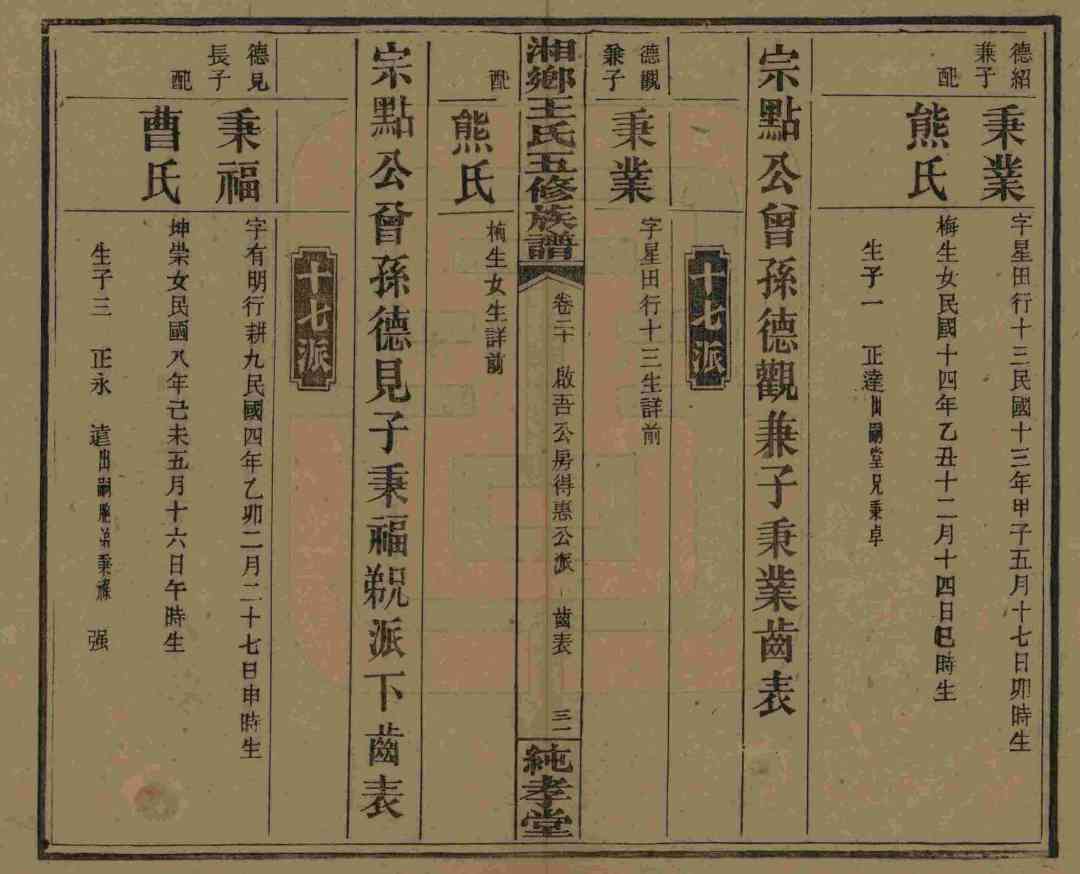 德紹
兼子
秉業
字星田行十三民國十三年甲子五月十七日卯時生
配
熊氏
梅生女民國十四年乙丑十二月十四日巳時生
生子一 正達出嗣堂兄秉卓
宗點公曾孫德觀兼子秉業齒表
十七派
德觀
兼子
秉業
字星田行十三生詳前
湘鄉王氏五修族譜
卷二十 啟吾公房得惠公派 齒表 三一
純孝堂
配
熊氏
楠生女生詳前
宗點公曾孫德見子秉福覣派下齒表
十七派
德見
長子
秉福
字有明行耕九民國四年乙卯二月二十七日申時生
配
曹氏
坤崇女民國八年己未五月十六日午時生
生子三 正永 遠出嗣胞弟秉 强